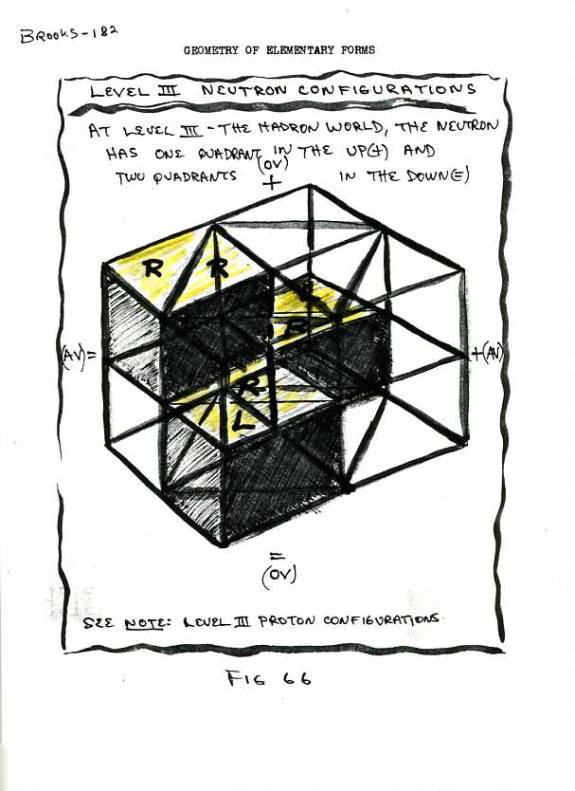 BROOKS-182
GEOMETRY OF ELEMENTARY FORMS
LEVEL III NEUTRON CONFIGURATIONS
AT LEVEL III - THE HADRON WORLD, THE NEUTRON
HAS ONE QUADRANT IN THE UP(+) AND
(OV)
TWO QUADRANTS + IN THE DOWN(=)
R R
R
L
(AV)= +(AV)
=
(OV)
SEE NOTE: LEVEL III PROTON CONFIGURATIONS
FIG 66